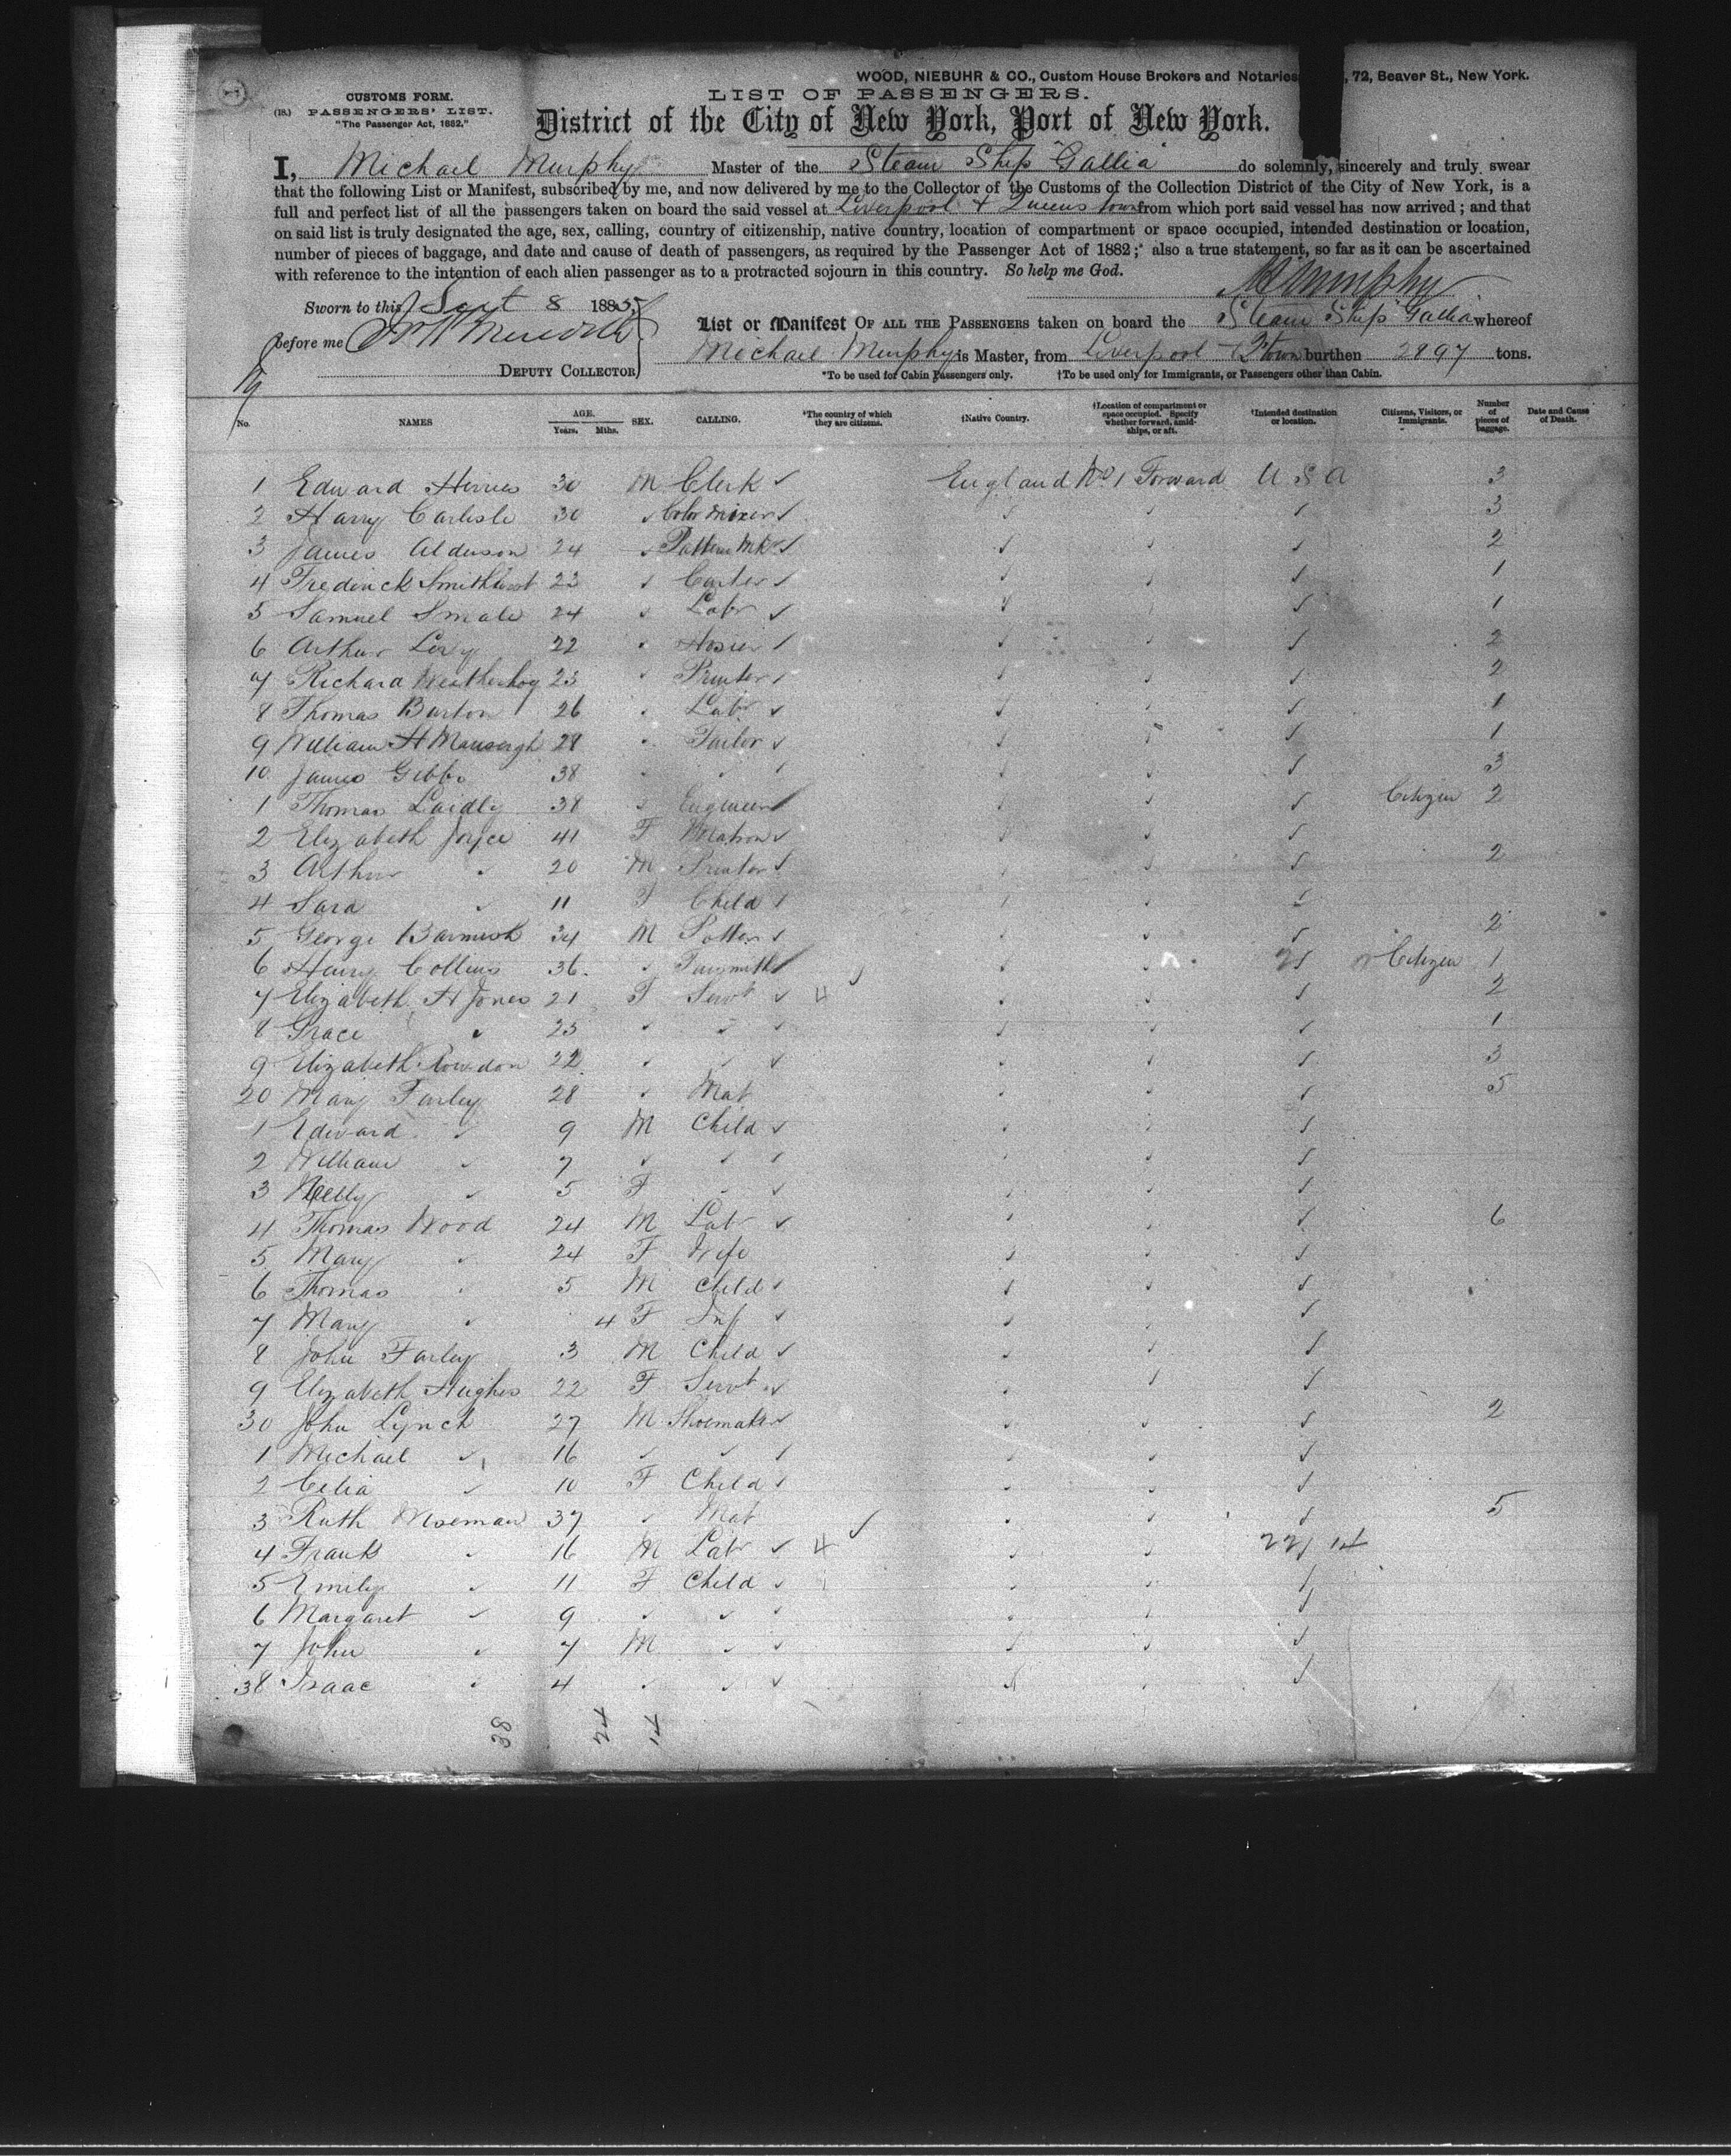 WOOD, NIEBUHR & CO., Custom House Brokers and Notaries , 72, Beaver St., New York.
CUSTOMS FORM.
LIST OF PASSENGERS.
(18.) PASSENGERS' LIST.
"The Passenger Act, 1882."
District of the City of New York, Port of New York.
I, Michael Murphy Master of the Steam Ship "Gallia" do solemnly, sincerely and truly swear
that the following List or Manifest, subscribed by me, and now delivered by me to the Collector of the Customs of the Collection District of the City of New York, is a
full and perfect list of all the passengers taken on board the said vessel at Liverpool + Queenstown from which port said vessel has now arrived; and that
on said list is truly designated the age, sex, calling, country of citizenship, native country, location of compartment or space occupied, intended destination or location,
number of pieces of baggage, and date and cause of death of passengers, as required by the Passenger Act of 1882; also a true statement, so far as it can be ascertained
with reference to the intention of each alien passenger as to a protracted sojourn in this country. So help me God.
M Murphy
Sworn to this Sept 8 1885
List or Manifest OF ALL THE PASSENGERS taken on board the Steam Ship Gallia whereof
before me
Michael Murphy is Master, from Liverpool + Q'town burthen 2897 tons.
DEPUTY COLLECTOR
*To be used for Cabin Passengers only. †To be used only for Immigrants, or Passengers other than Cabin.
No. NAMES AGE. Years. Mths. SEX. CALLING. *The country of which they are citizens. †Native Country. †Location of compartment or space occupied. Specify whether forward, amidships, or aft. †Intended destination or location. Citizens, Visitors, or Immigrants. Number of pieces of baggage. Date and Cause of Death.
1 Edward 30 M Clerk ✓ England No 1 Forward U S A 3
2 Harry Carlisle 30 ✓ Color Mixer ✓ 3
3 James Alderson 24 ✓ Pattern Mkr ✓ 2
4 Frederick Smithurst 23 ✓ Carter ✓ 1
5 Samuel Smale 24 ✓ Labr ✓ 1
6 Arthur Levy 22 Hosier 2
7 Richard Weatherhog 23 Printer 2
8 Thomas Burton 26 Labr ✓ 1
9 William H Mansergh 28 Tailor ✓ 1
10 James Gibbs 38 3
1 Thomas Laidly 38 ✓ Engineer Citizen 2
2 Elizabeth Joyce 41 F Matron ✓
3 Arthur " 20 M Printer 2
4 Sara " 11 F Child
5 George 34 M Potter 2
6 Henry Collins 36 ✓ Tinsmith Citizen 1
7 Elizabeth H Jones 21 F Servt ✓ 4 2
8 Grace " 25 ✓ ✓ ✓ 1
9 Elizabeth Rowdon 22 ✓ 3
20 Mary Farley 28 Mat 5
1 Edward " 9 M Child ✓
2 William " 7
3 Nelly " 5 F
4 Thomas Wood 24 M Labr ✓ 6
5 Mary " 24 F Wife
6 Thomas " 5 M Child
7 Mary " 4 F Inf ✓
8 John Farley 3 M Child ✓
9 Elizabeth Hughes 22 F Servt ✓
30 John Lynch 27 M Shoemaker 2
1 Michael " 16
2 Celia " 10 F Child
3 Ruth Moseman 37 Mat 5
4 Frank " 16 M Labr ✓ 4 22/ 14
5 Emily " 11 F Child ✓
6 Margaret " 9
7 John " 7 M
38 Isaac " 4
38 24 14